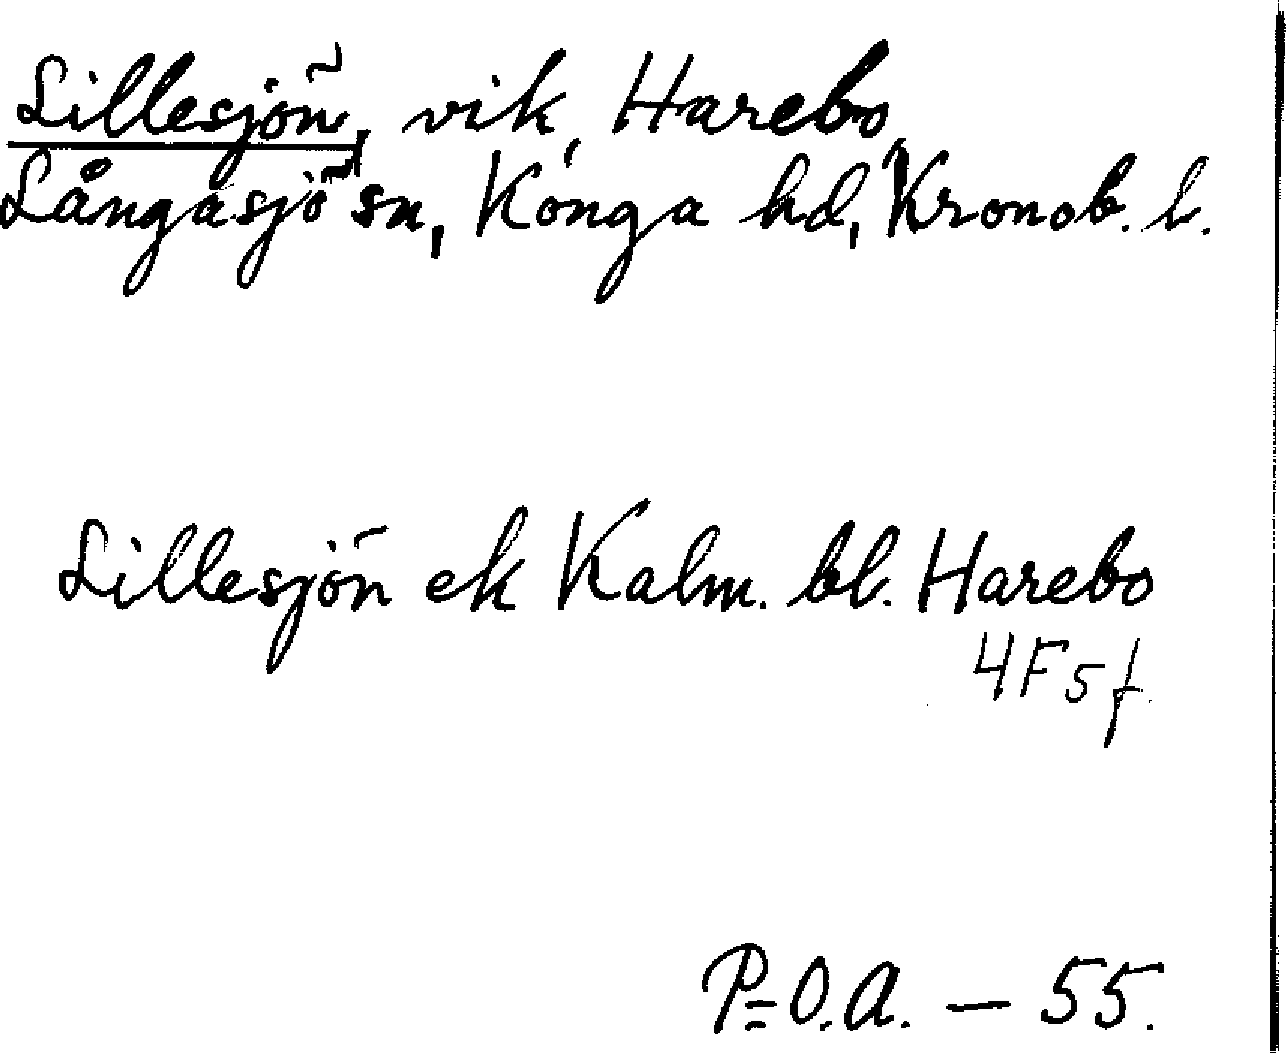 Lillesjön, vik, Harebo,
Långasjö sn, Konga hd, Kronob. l.
Lillesjön ek Kalm. bl. Harebo
4F5f
P=O.A. — 55.